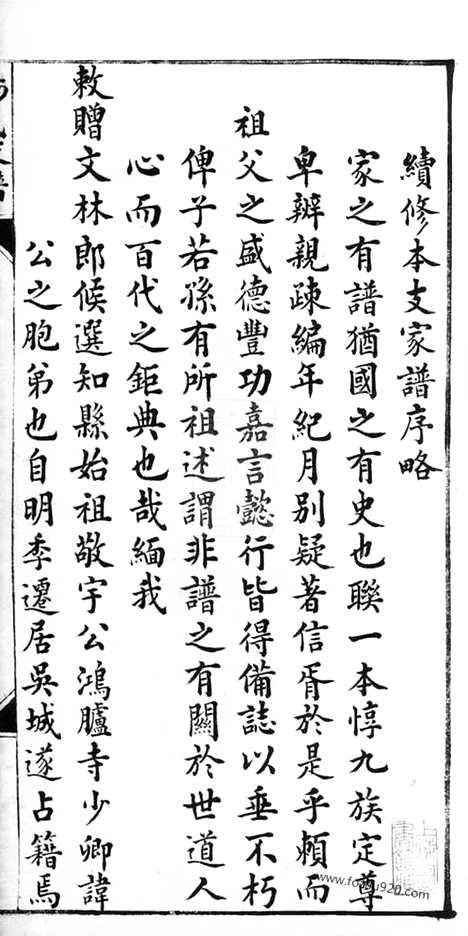 續修本支家譜序略
家之有譜猶國之有史也聯一本惇九族定尊
卑辨親疎編年紀月別疑著信胥於是乎頼而
祖父之盛德豐功嘉言懿行皆得備誌以垂不朽
俾子若孫有所祖述謂非譜之有關於世道人
心而百代之鉅典也哉緬我
敕贈文林郎候選知縣始祖敬宇公鴻臚寺少卿諱
公之胞弟也自明季遷居吳城遂占籍焉
www.foryu920.com